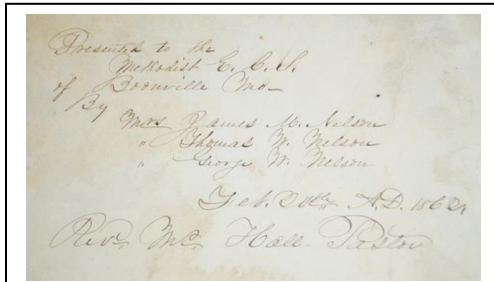 Presented to the
Methodist E. C. S.
of Boonville Mo.
By
Mrs James M. Nelson
" Thomas W. Nelson
" George W. Nelson
Feb. 20th A.D. 1862
Revd Mr. Hall Pastor